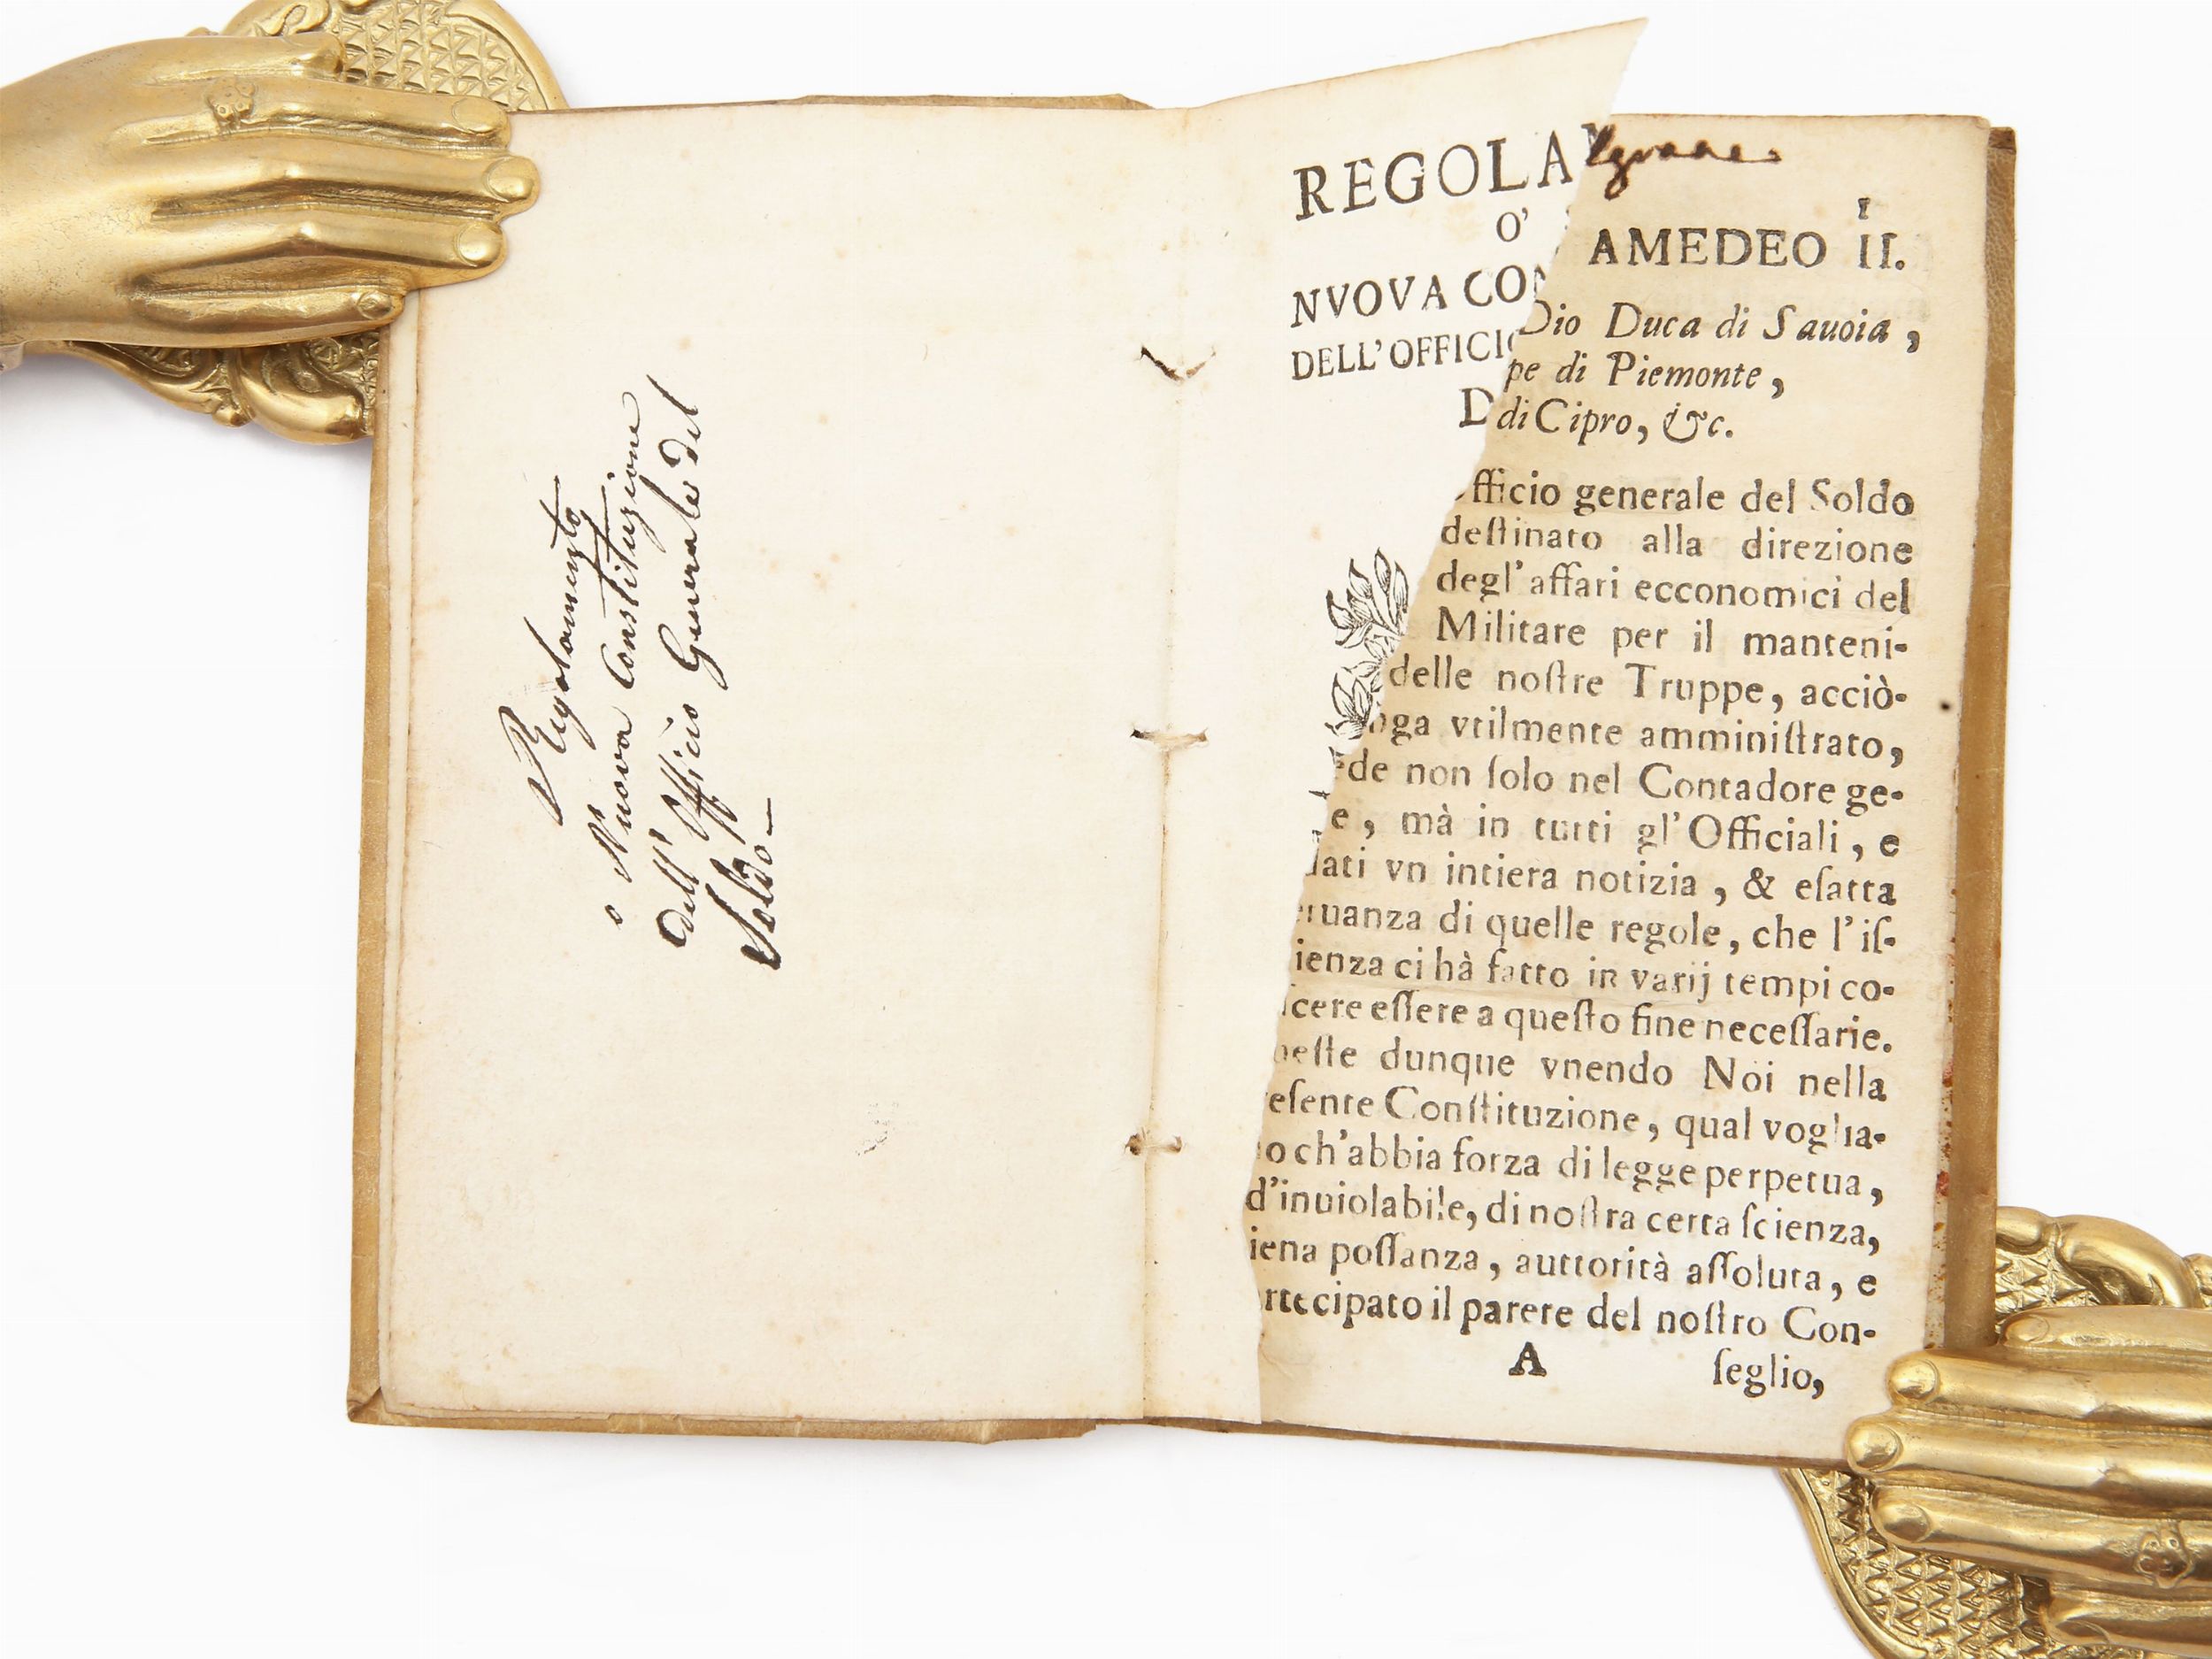 Regolamento
o Nuova Constituzione
dell' Officio Generale del
Soldo
REGOLA
O'
NVOVA CON
DELL'OFFICI
D
AMEDEO II.
I
Dio Duca di Sauoia,
pe di Piemonte,
di Cipro, &c.
fficio generale del Soldo
deſtinato alla direzione
degl'affari ecconomici del
Militare per il manteni-
delle noſtre Truppe, acciò-
nga vtilmente amminiſtrato,
de non ſolo nel Contadore ge-
e, mà in tutti gl'Officiali, e
dati vn intiera notizia, & eſatta
ruanza di quelle regole, che l'iſ-
ienza ci hà fatto in varij tempi co-
ſcere eſſere a queſto fine neceſſarie.
eſte dunque vnendo Noi nella
eſente Conſtituzione, qual voglia-
o ch'abbia forza di legge perpetua,
d'inuiolabile, di noſtra certa ſcienza,
iena poſſanza, auttorità aſſoluta, e
rtecipato il parere del noſtro Con-
A ſeglio,